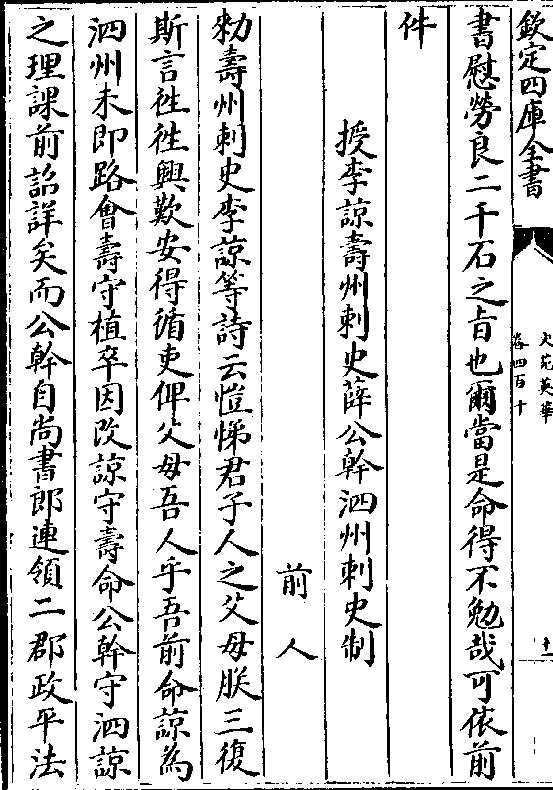 欽定四庫全書
文苑英華
卷四百十
十一
書慰勞良二千石之㫖也爾當是命得不勉哉可依前
件
授李諒壽州刺史薛公幹泗州刺史制
前人
勑壽州刺史李諒等詩云愷悌君子人之父母朕三復
斯言徃徃興歎安得循吏俾父母吾人乎吾前命諒為
泗州未即路會壽守植卒因改諒守壽命公幹守泗諒
之理課前詔詳矣而公幹自尚書郎連領二郡政平法